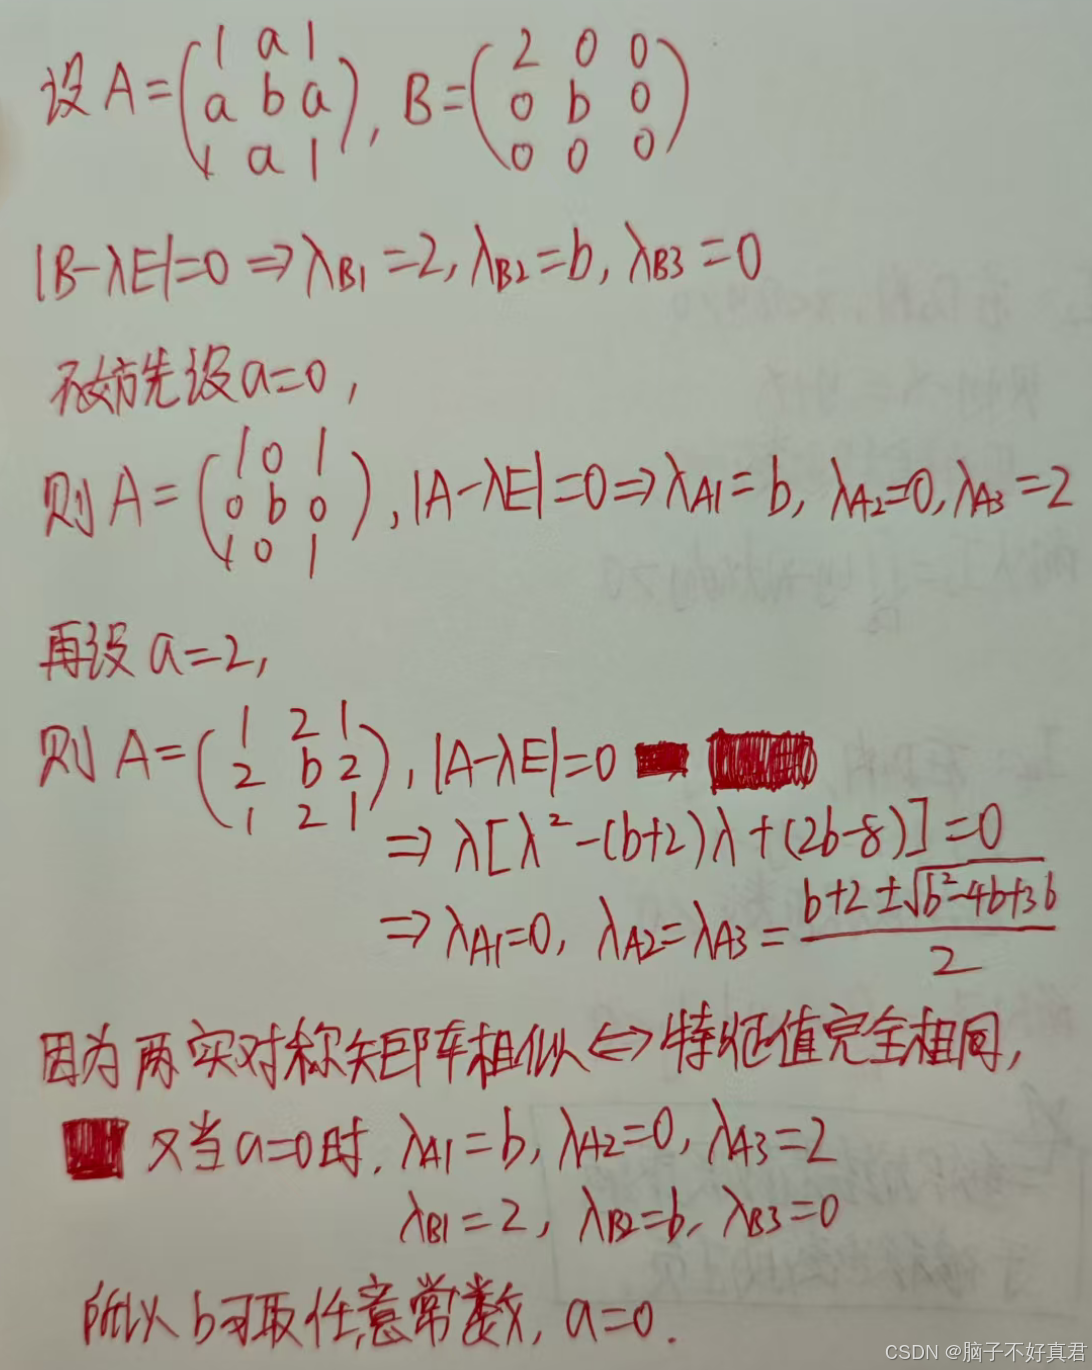 设 A = ( 1 a 1
a b a
1 a 1 ), B = ( 2 0 0
0 b 0
0 0 0 )
|B-λE|=0 ⇒ λB1 = 2, λB2 = b, λB3 = 0
不妨先设 a=0,
则 A = ( 1 0 1
0 b 0
1 0 1 ), |A-λE|=0 ⇒ λA1 = b, λA2=0, λA3 = 2
再设 a=2,
则 A = ( 1 2 1
2 b 2
1 2 1 ), |A-λE|=0
⇒ λ[λ²-(b+2)λ+(2b-8)]=0
⇒ λA1=0, λA2=λA3 = (b+2±√(b²-4b+36))/2
因为两实对称矩阵相似⇔特征值完全相同,
又当a=0时, λA1=b, λA2=0, λA3=2
λB1=2, λB2=b, λB3=0
所以 b可取任意常数, a=0.
CSDN @脑子不好真君